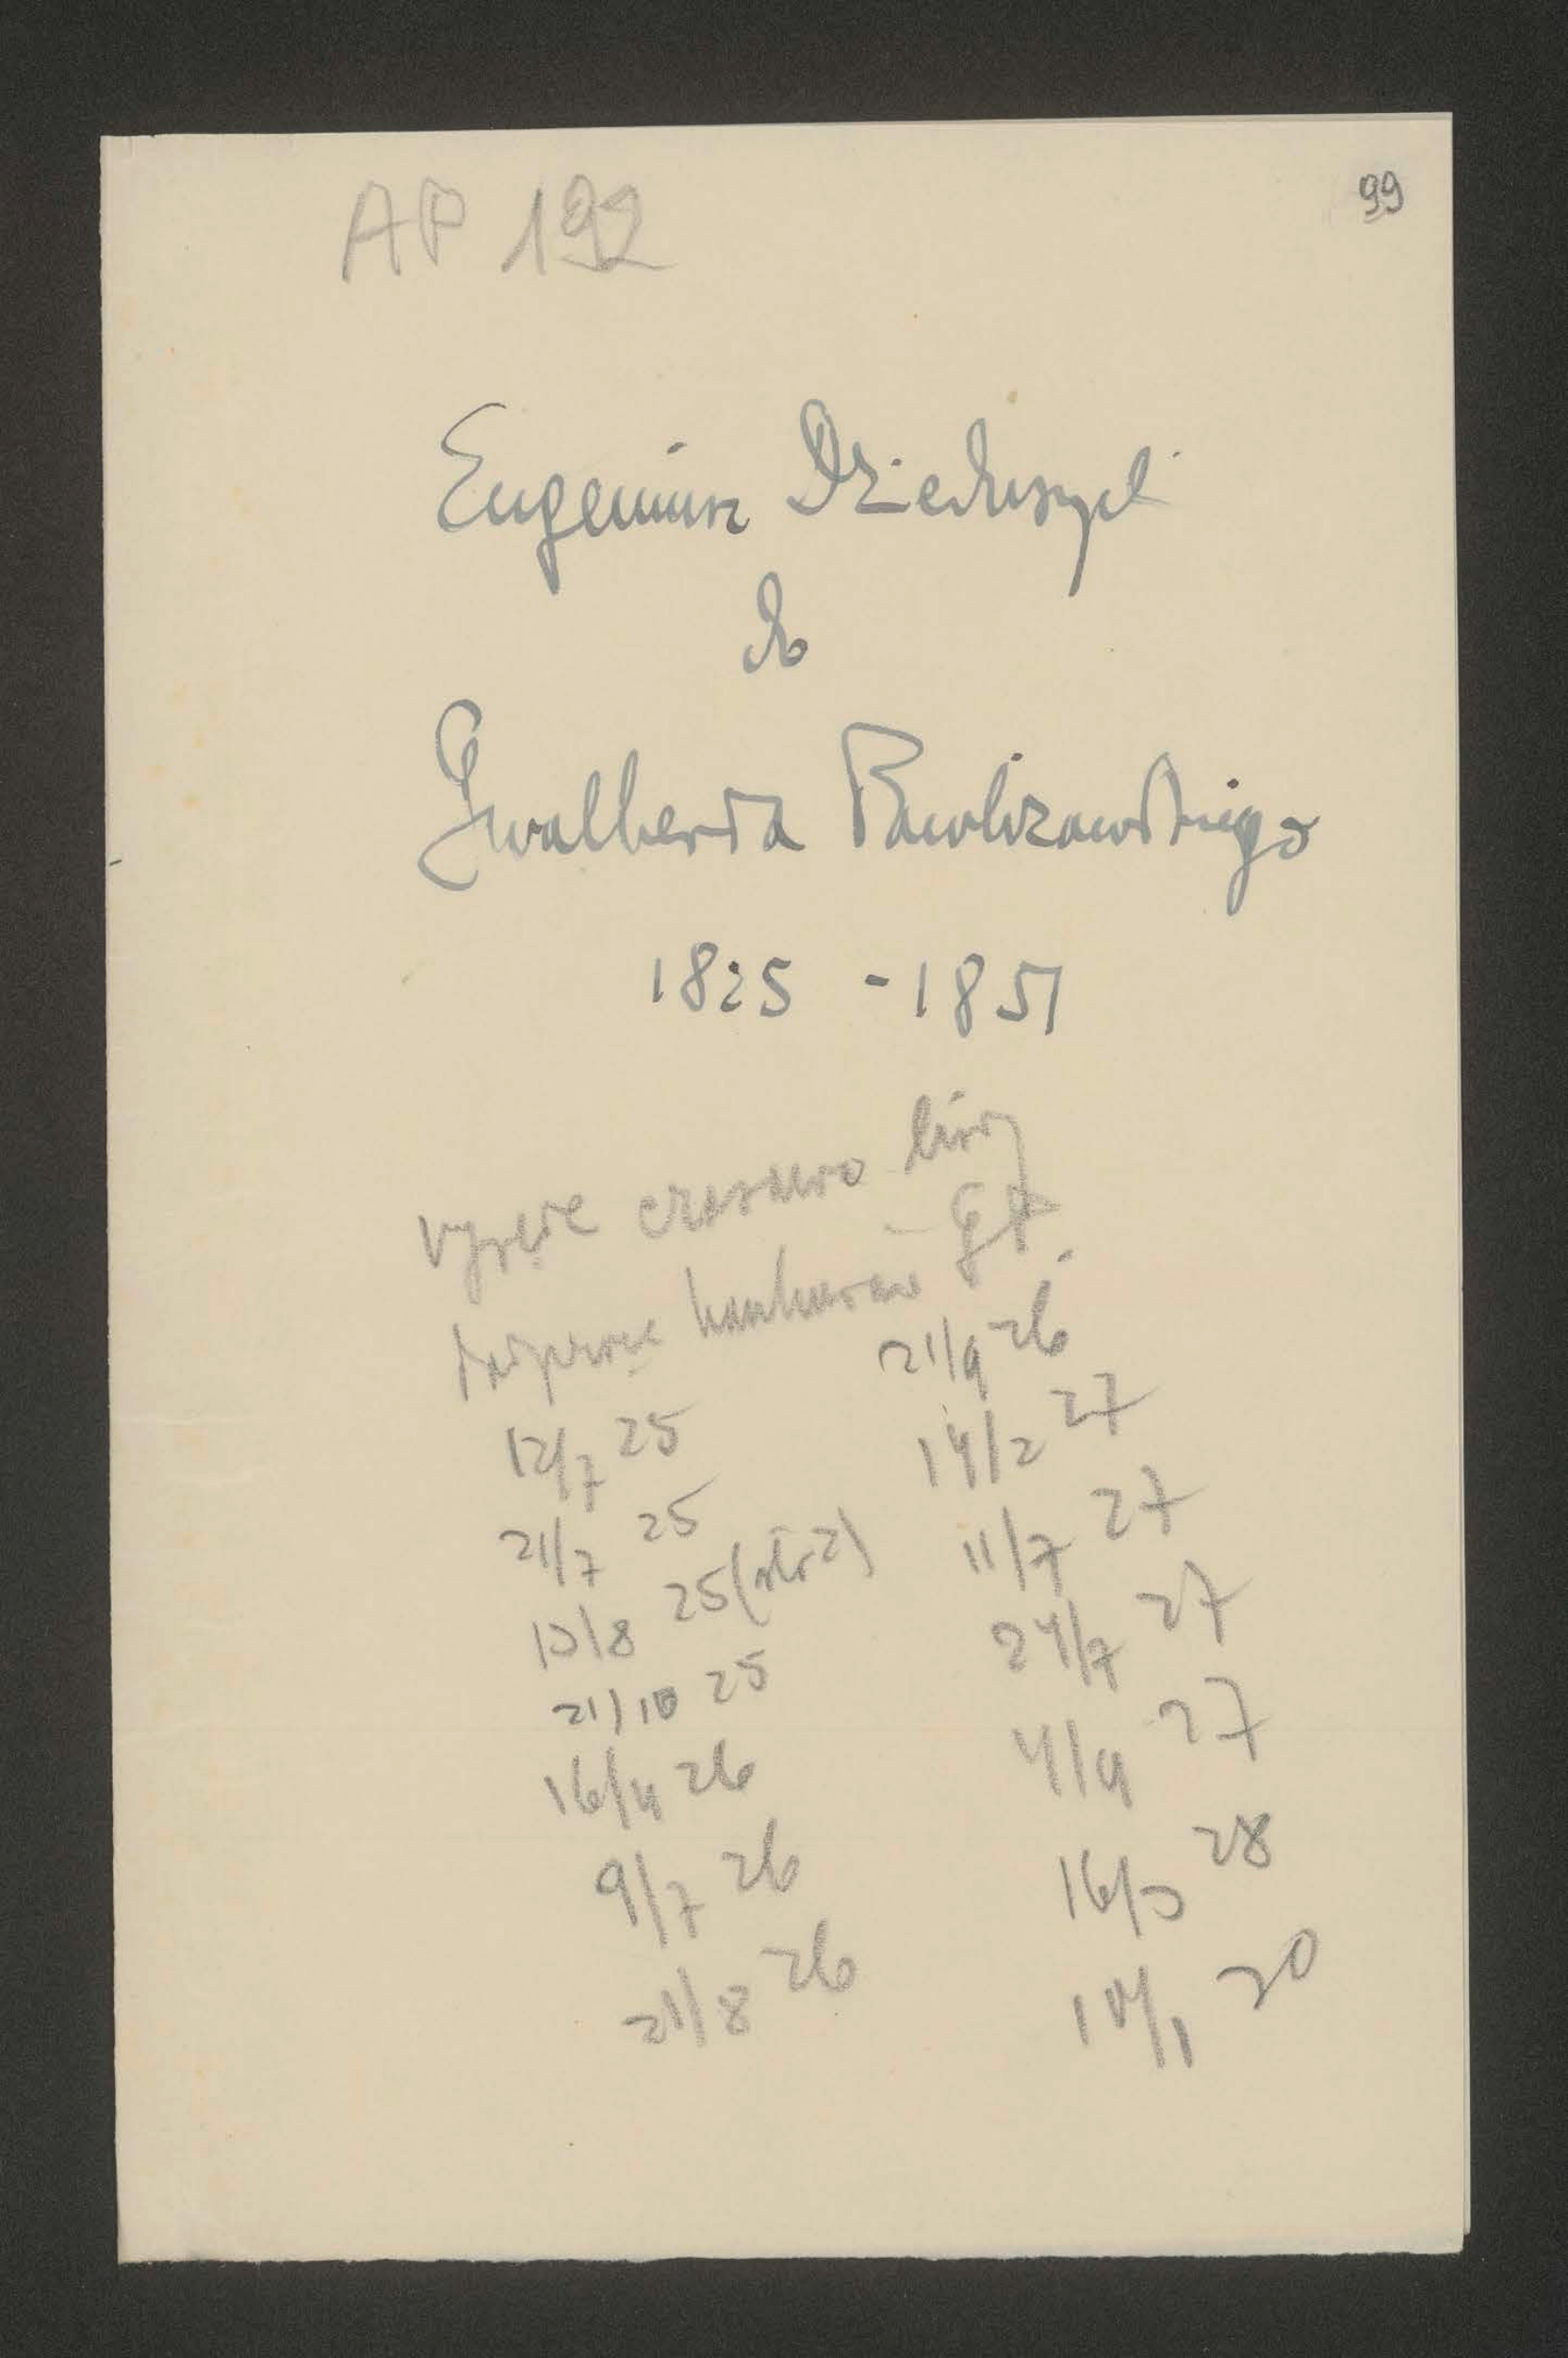 AP 192
99
Eugeniusz Dzieduszycki
do
Gwalberta Pawlikowskiego
1825 - 1851
wyjęte czasowo listy
GP.
12/7 25
21/7 25
10/8 25 (str 2)
21/10 25
16/4 26
9/7 26
21/8 26
21/9 26
14/2 27
11/7 27
24/7 27
4/9 27
16/5 28